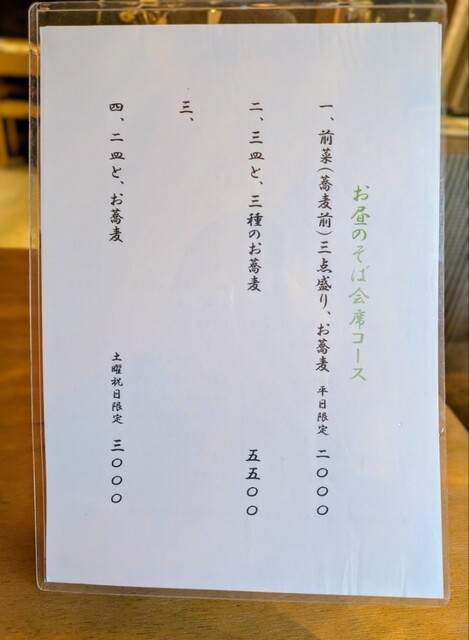 お昼のそば会席コース
一、前菜(蕎麦前)三点盛り、お蕎麦 平日限定 二〇〇〇
二、三皿と、三種のお蕎麦 五五〇〇
三、
四、二皿と、お蕎麦 土曜祝日限定 三〇〇〇